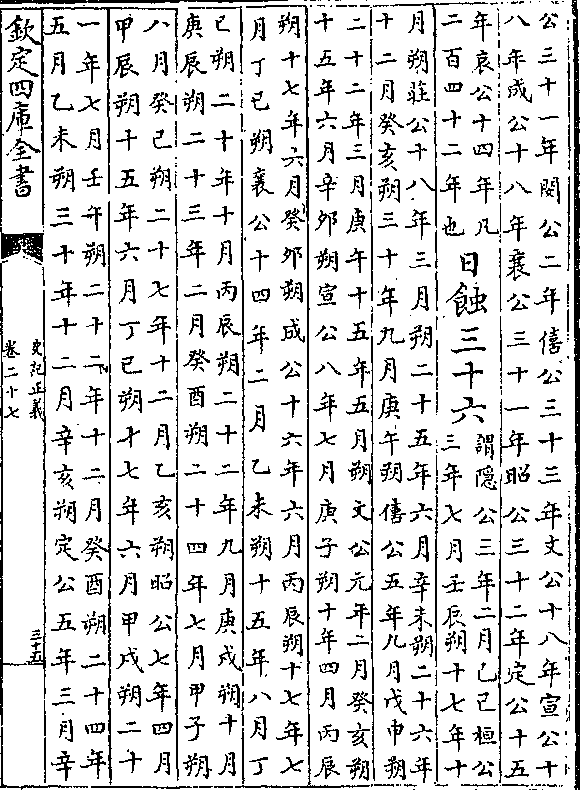 公三十一年閔公二年僖公三十三年文公十八年宣公十
八年成公十八年襄公三十一年昭公三十二年定公十五
年哀公十四年凡
二百四十二年也
日蝕三十六
謂隐公三年二月己巳桓公
三年七月壬辰朔十七年十
月朔莊公十八年三月朔二十五年六月辛未朔二十六年
十二月癸亥朔三十年九月庚午朔僖公五年九月戊申朔
二十二年三月庚午十五年五月朔文公元年二月癸亥朔
十五年六月辛夘朔宣公八年七月庚子朔十年四月丙辰
朔十七年六月癸夘朔成公十六年六月丙辰朔十七年七
月丁巳朔襄公十四年二月乙未朔十五年八月丁
巳朔二十年十月丙辰朔二十二年九月庚戌朔十月
庚辰朔二十三年二月癸酉朔二十四年七月甲子朔
八月癸巳朔二十七年十二月乙亥朔昭公七年四月
甲辰朔十五年六月丁巳朔十七年六月甲戌朔二十
一年七月壬午朔二十二年十二月癸酉朔二十四年
五月乙未朔三十年十二月辛亥朔定公五年三月辛
欽定四庫全書
史記正義
卷二十七
三十五